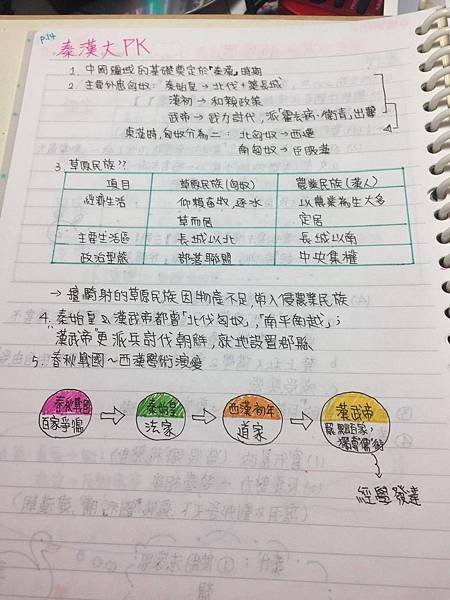 p.14
秦漢大PK
1. 中國疆域的基礎奠定於「秦漢」時期
2. 主要外患匈奴: 秦始皇→北伐+築長城
漢初→和親政策
武帝→武力討,派「霍去病、衛青」出擊
東漢時,匈奴分為二: 北匈奴→西遷
南匈奴→臣服漢
3. 草原民族??
項目 草原民族(匈奴) 農業民族(漢人)
經濟生活 仰賴畜牧,逐水草而居 以農業為生大多定居
主要生活區 長城以北 長城以南
政治型態 部落聯盟 中央集權
→擅騎射的草原民族因物產不足,南入侵農業民族
4. 秦始皇&漢武帝都曾「北伐匈奴」,「南平南越」;
漢武帝更派兵討伐朝鮮,就地設置郡縣
5. 春秋戰國~西漢學術演變
春秋戰國 百家爭鳴
秦始皇 法家
西漢初年 道家
漢武帝 罷黜百家,獨尊儒術
經學發達